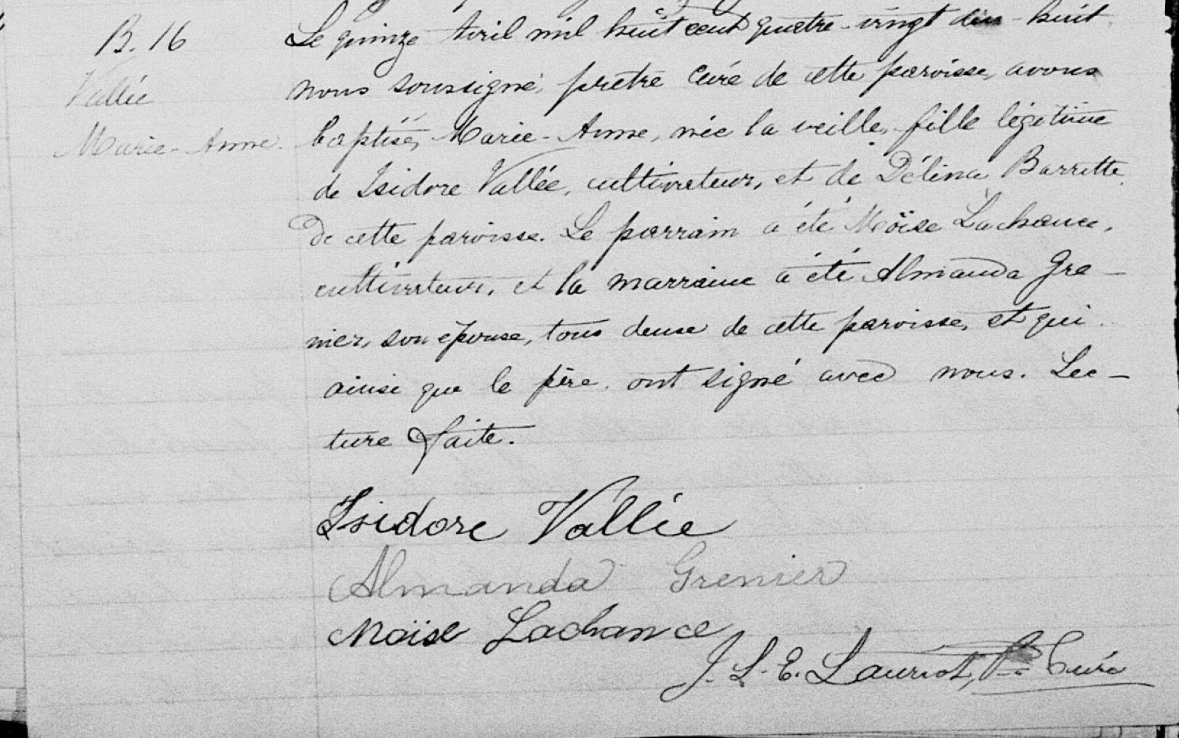 B. 16
Vallée
Marie-Anne.
Le quinze Avril mil huit cent quatre-vingt dix-huit
nous soussigné, prêtre curé de cette paroisse, avons
baptisé, Marie-Anne, née la veille, fille légitime
de Isidore Vallée, cultivateur, et de Délina Barrette
de cette paroisse. Le parrain a été Moïse Lachance,
cultivateur, et la marraine a été Almanda Gre-
nier, son épouse, tous deux de cette paroisse, et qui
ainsi que le père ont signé avec nous. Lec-
ture faite.
Isidore Vallée
Almanda Grenier
Moïse Lachance
J. L. E. Lauriot, Ptre Curé